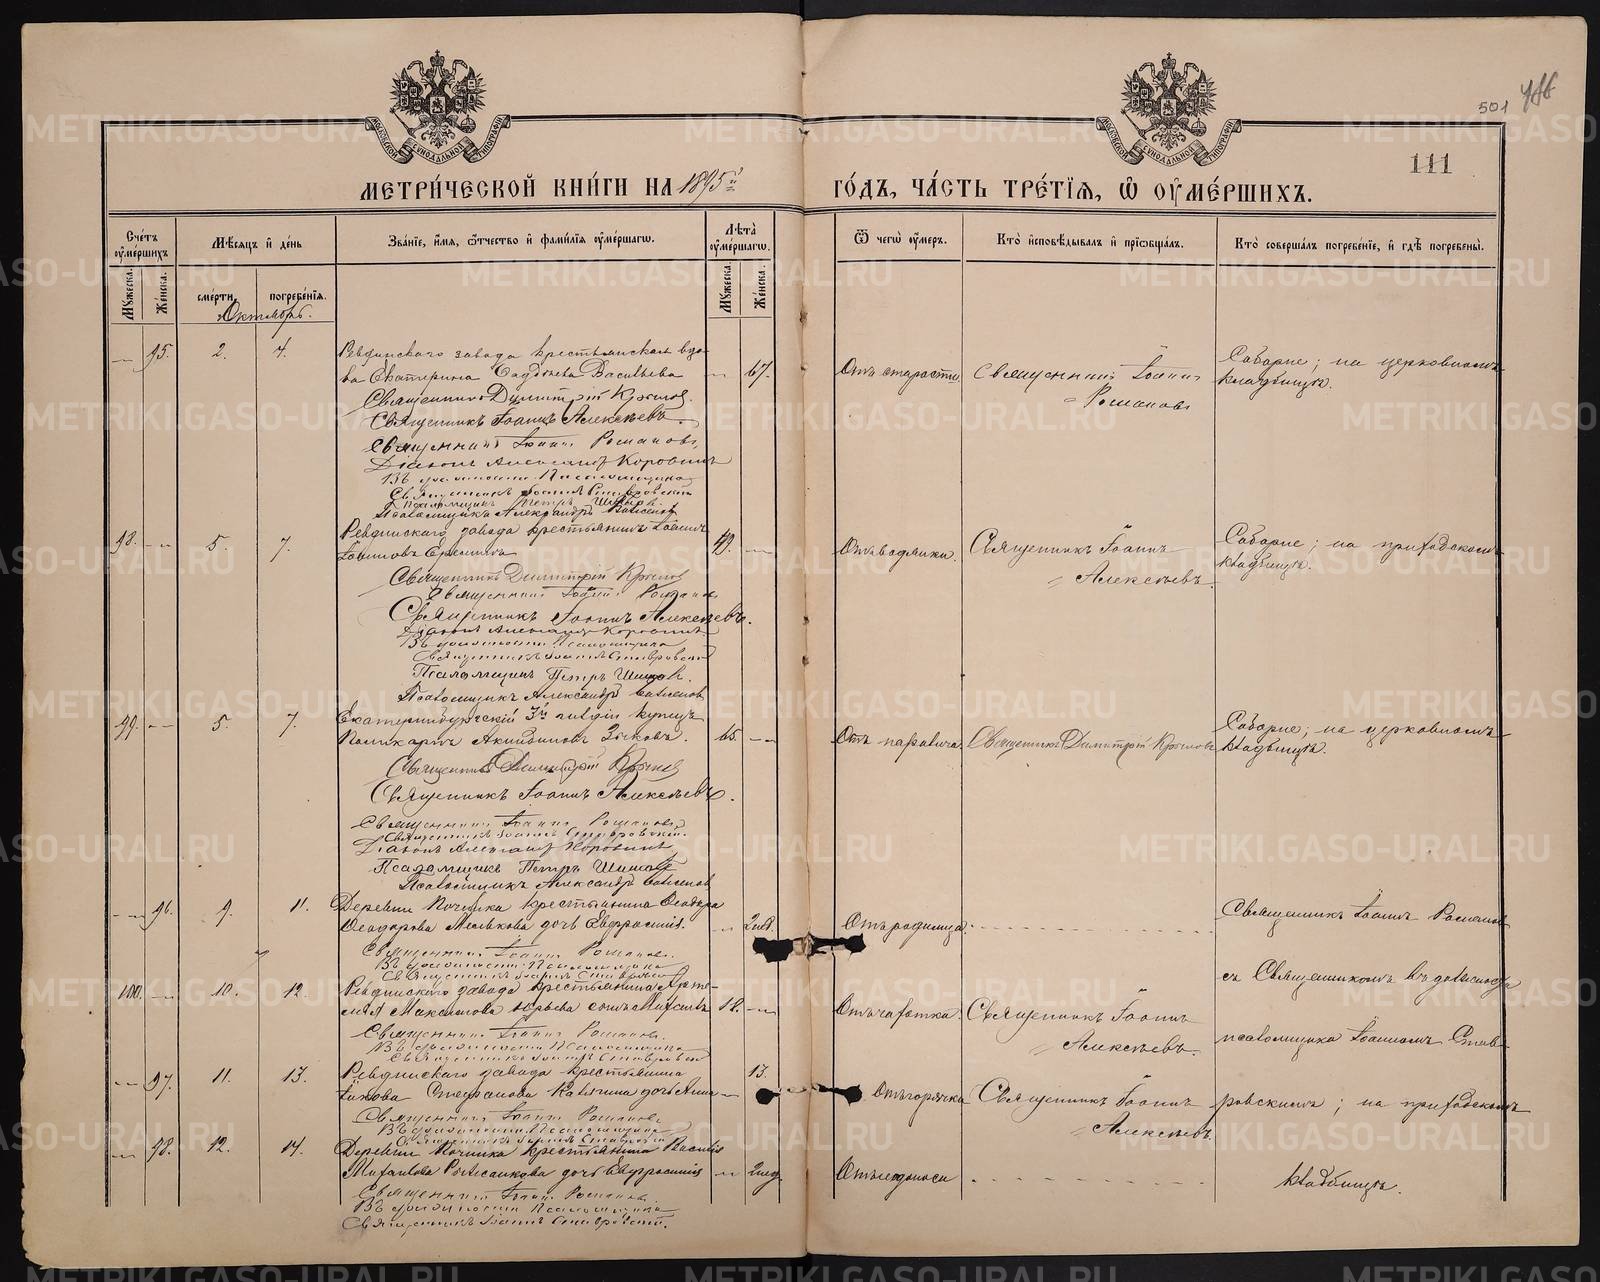 501
111
МЕТРИЧЕСКОЙ КНИГИ НА 1895й ГОДЪ, ЧАСТЬ ТРЕТІЯ, Ѿ ОУМЕРШИХЪ.
Счетъ оумершихъ
Мужеска.
Женска.
Мѣсяцъ и день
смерти.
погребенія.
Званіе, имя, отчество и фамилія оумершаго.
Лѣта оумершаго.
Мужеска.
Женска.
Ѿ чего оумеръ.
Кто исповѣдывалъ и пріобщалъ.
Кто совершалъ погребеніе, и гдѣ погребены.
Октябрь.
95. 2. 4. Ревдинскаго завода крестьянская вдо-
ва Екатерина Васильева 67. Отъ старости Священникъ Іоаннъ Романовъ
Соборне; на церковномъ кладбищѣ.
Священникъ Димитрій Крыловъ
Священникъ Іоаннъ Алексѣевъ.
Священникъ Іоаннъ Романовъ,
Діаконъ Александръ Коровинъ
Въ должности Псаломщика
Священникъ Іоаннъ Ставровскій
Псаломщикъ Петръ Шишовъ.
Псаломщикъ Александръ
98. 5. 7. Ревдинскаго завода крестьянинъ Іоаннъ
Іоанновъ 49. Отъ водянки. Священникъ Іоаннъ Алексѣевъ.
Соборне; на приходскомъ кладбищѣ.
Священникъ Димитрій Крыловъ
Священникъ Іоаннъ Романовъ
Священникъ Іоаннъ Алексѣевъ.
Діаконъ Александръ Коровинъ
Въ должности Псаломщика
Священникъ Іоаннъ Ставровскій
Псаломщикъ Петръ Шишовъ.
Псаломщикъ Александръ
99. 5. 7. Екатеринбургскій 3й гильдіи купецъ
Поликарпъ Акинфіевъ Зыковъ. 65. Отъ паралича. Священникъ Димитрій Крыловъ
Соборне; на церковномъ кладбищѣ.
Священникъ Димитрій Крыловъ
Священникъ Іоаннъ Алексѣевъ.
Священникъ Іоаннъ Романовъ
Священникъ Іоаннъ Ставровскій.
Діаконъ Александръ Коровинъ
Псаломщикъ Петръ Шишовъ
Псаломщикъ Александръ
96. 9. 11. Деревни Починка крестьянина Ѳеодора
Ѳеодорова дочь Евфросинія. Отъ родимца.
Священникъ Іоаннъ Романовъ
Священникъ Іоаннъ Романовъ.
Въ должности Псаломщика
Священникъ Іоаннъ Ставровскій
100. 10. 12. Ревдинскаго завода крестьянина Арте-
мія Максимова сынъ Михаилъ 18. Отъ чахотки. Священникъ Іоаннъ Алексѣевъ.
съ Священникомъ въ должности псаломщика Іоанномъ Став-
Священникъ Іоаннъ Романовъ.
Въ должности Псаломщика
Священникъ Іоаннъ Ставровскій
97. 11. 13. Ревдинскаго завода крестьянина
Стефанова дочь Анна 13. Отъ горячки Священникъ Іоаннъ Алексѣевъ.
ровскимъ; на приходскомъ
Священникъ Іоаннъ Романовъ
Въ должности Псаломщика
Священникъ Іоаннъ Ставровскій
98. 12. 14. Деревни Починка крестьянина Василія
Михаилова дочь Евфросинія
кладбищѣ.
Священникъ Іоаннъ Романовъ.
Въ должности Псаломщика
Священникъ Іоаннъ Ставровскій.
METRIKI.GASO-URAL.RU